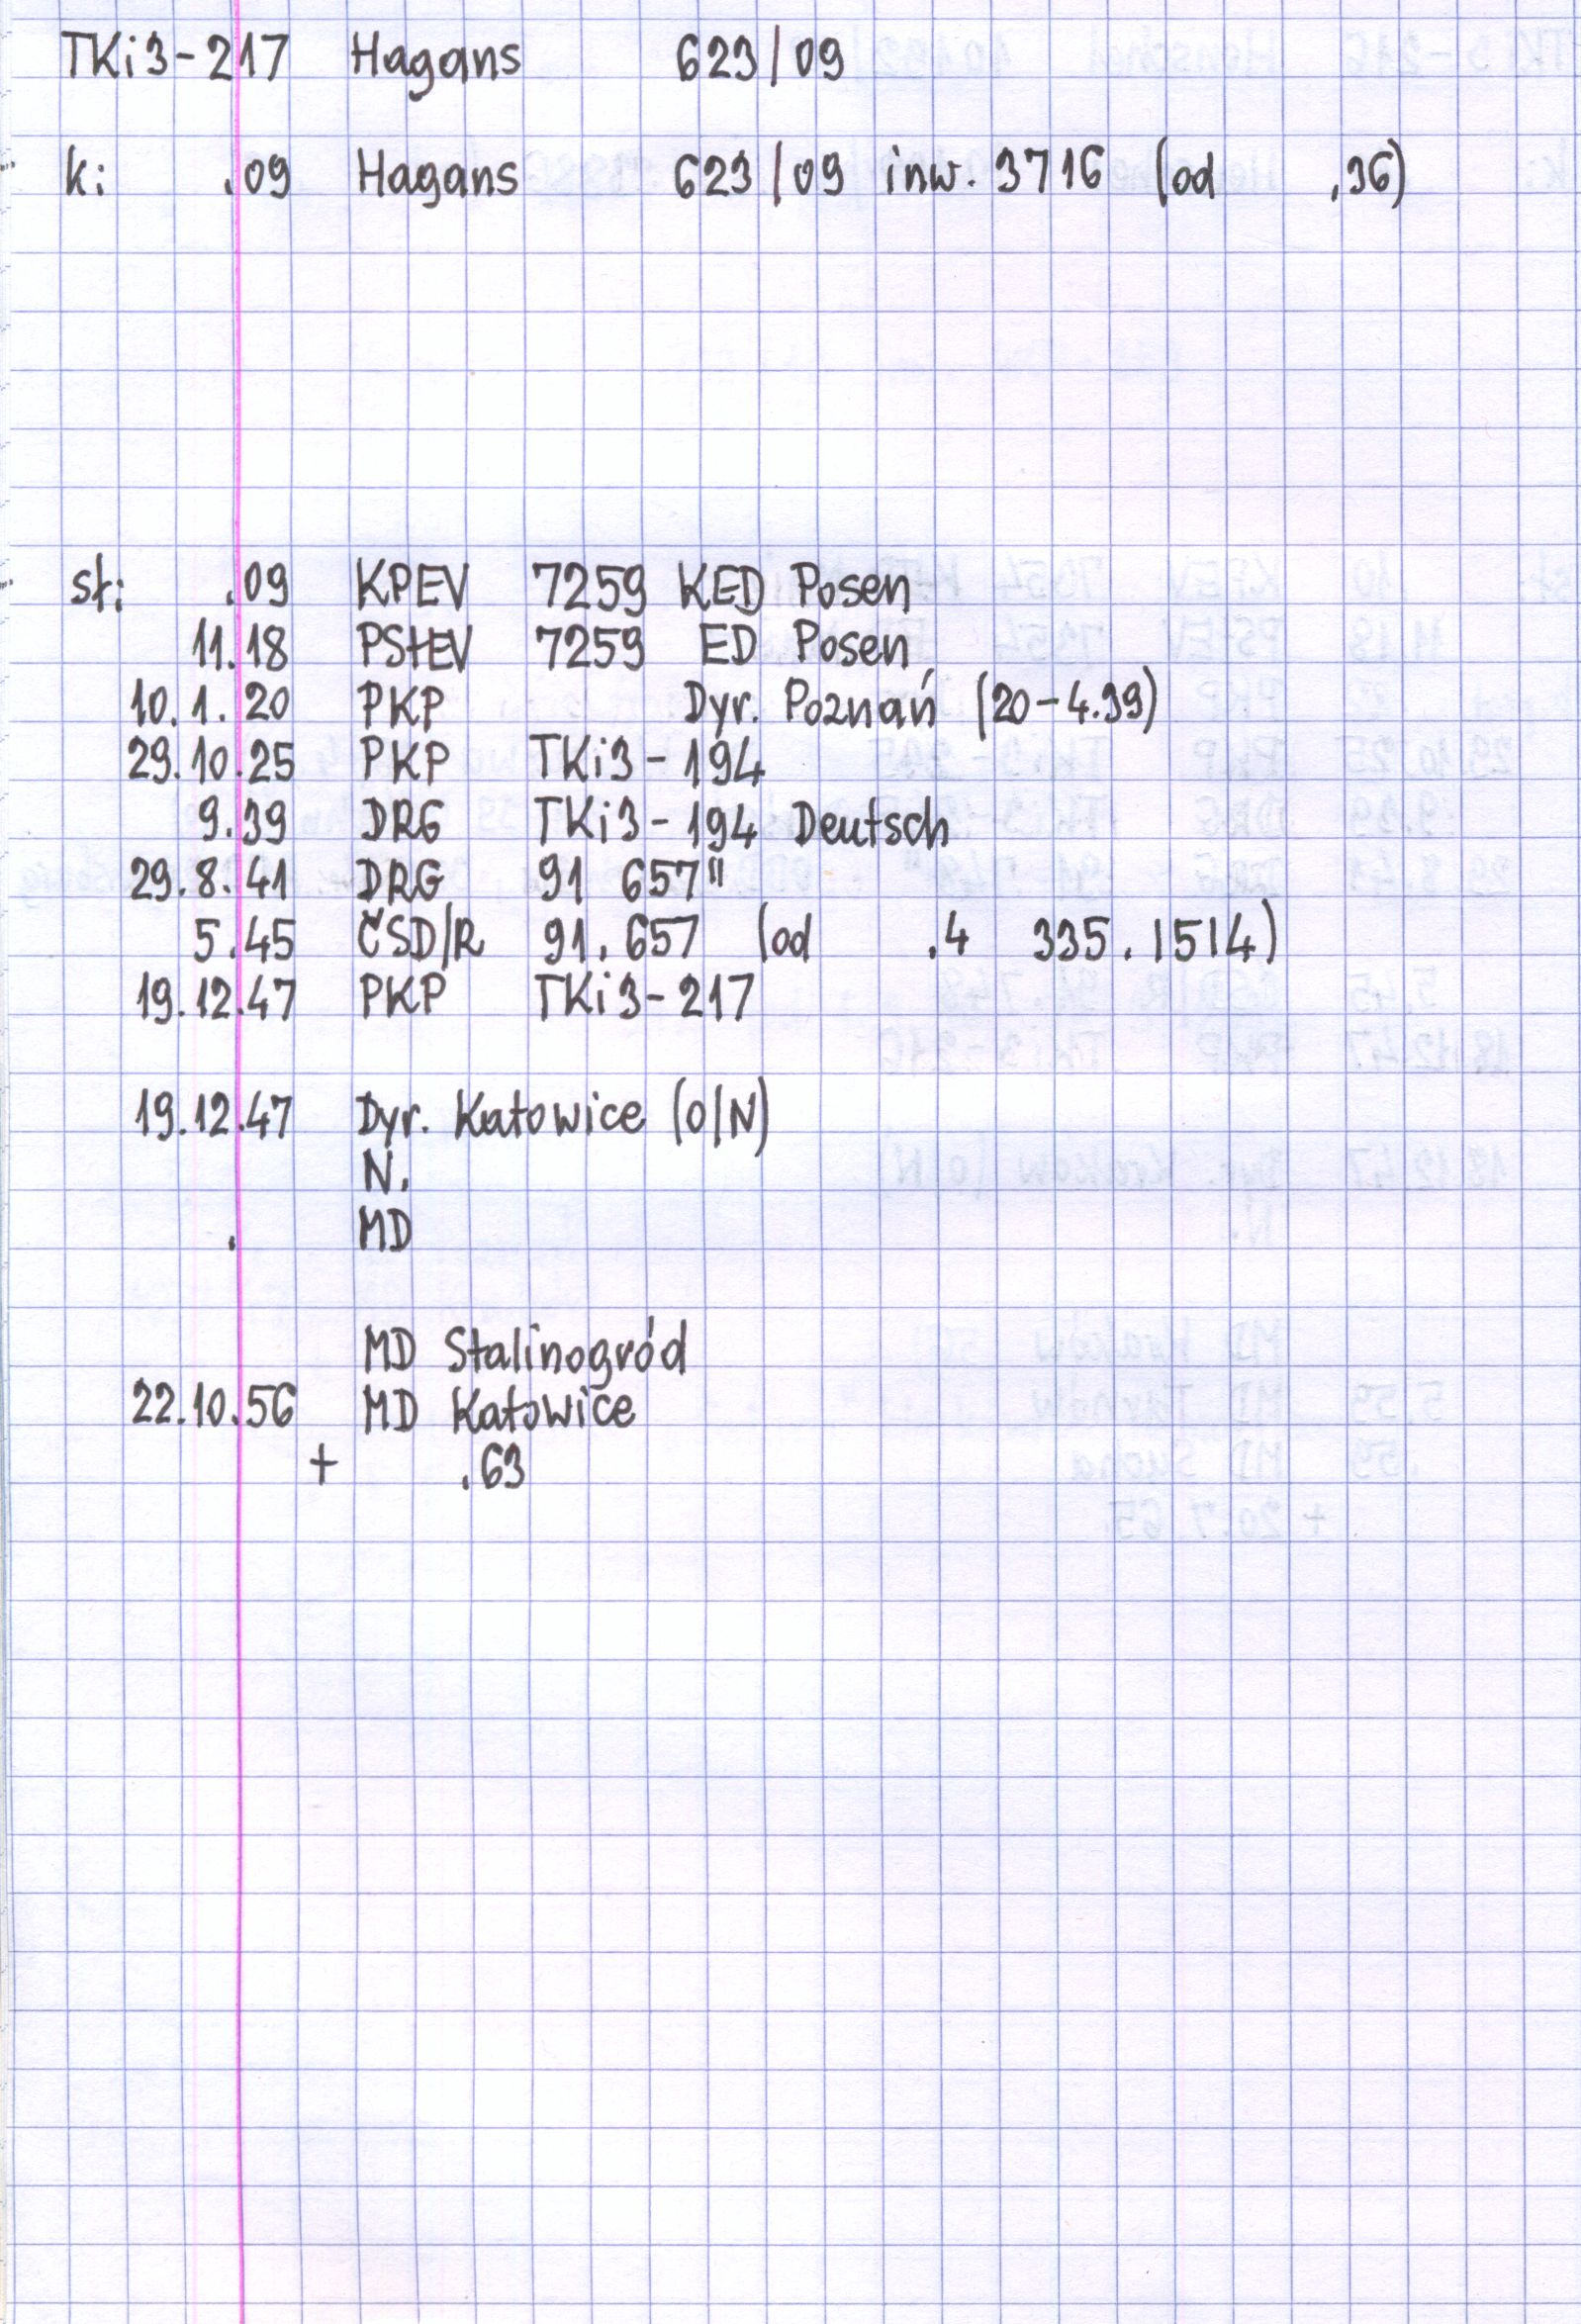 TKi3-217 Hagans 623/09
k: .09 Hagans 623/09 inw. 3716 (od .36)
st: .09 KPEV 7259 KED Posen
11.18 PStEV 7259 ED Posen
10.1.20 PKP Dyr. Poznań (20-4.39)
29.10.25 PKP TKi3-194
9.39 DRG TKi3-194 Deutsch
29.8.41 DRG 91 657"
5.45 ČSD/R 91.657 (od .4 335.1514)
19.12.47 PKP TKi3-217
19.12.47 Dyr. Katowice (O/N)
N.
. MD
MD Stalinogród
22.10.56 MD Katowice
+ .63